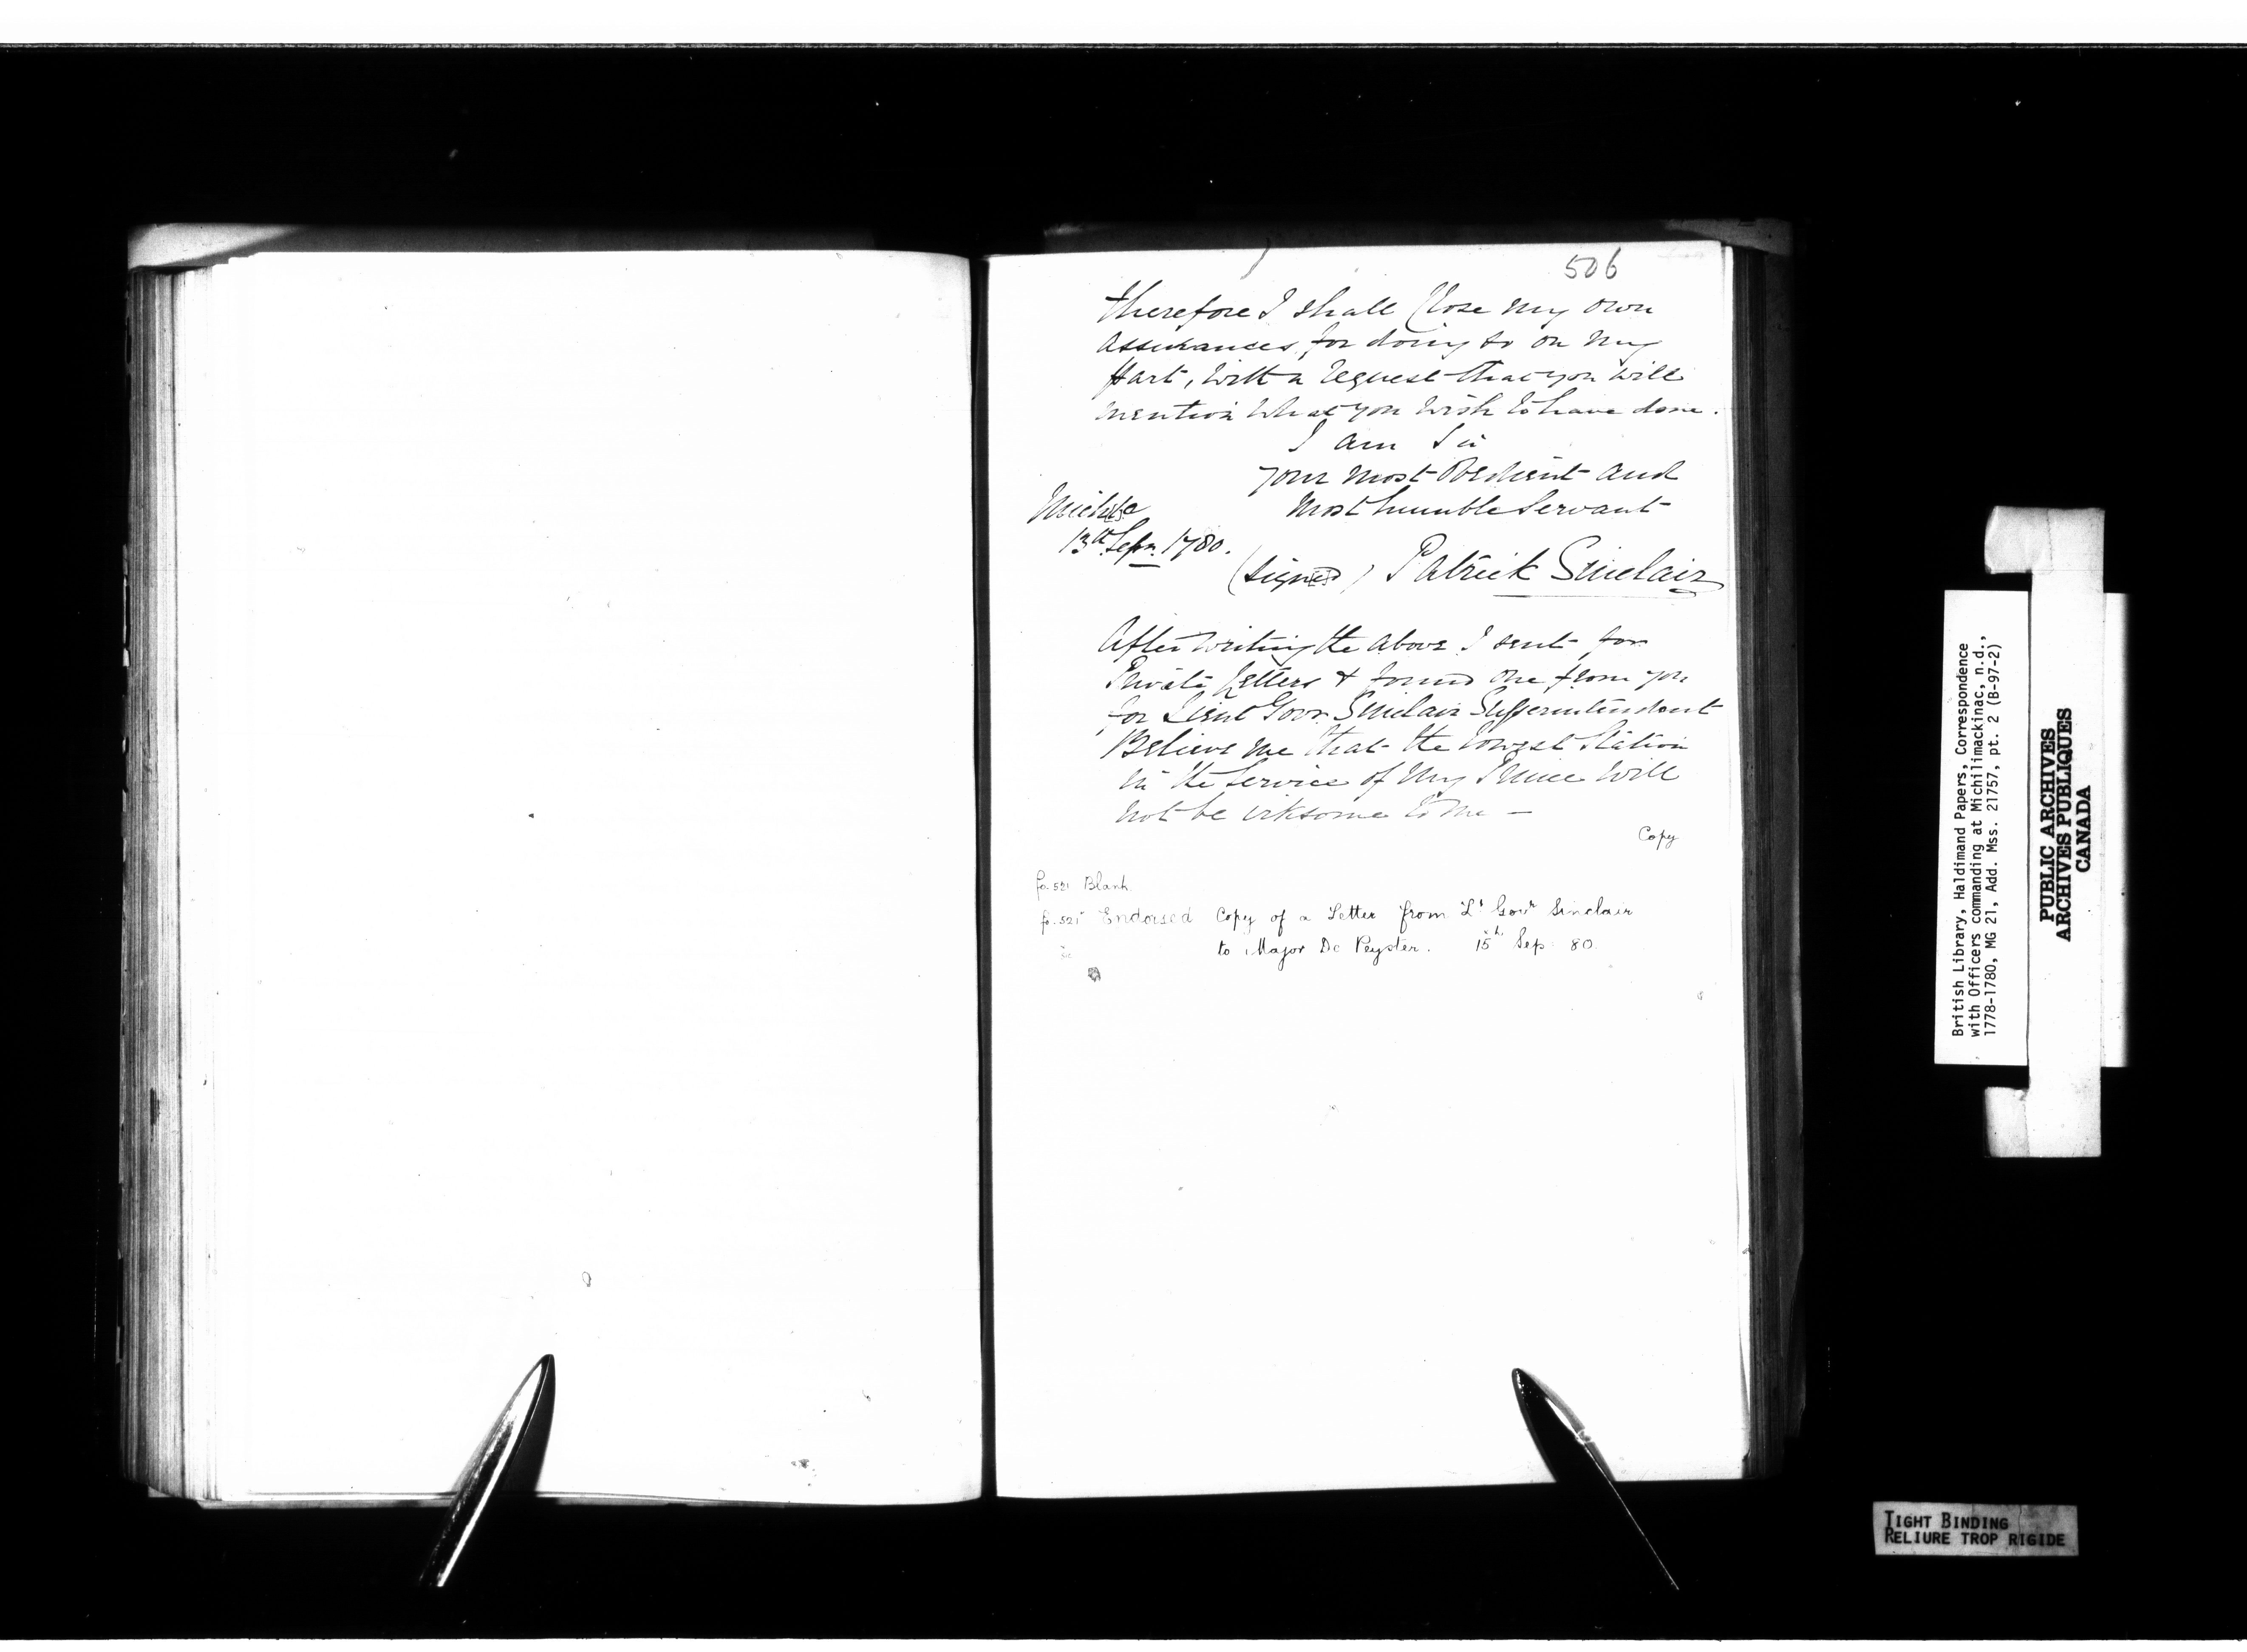 506
therefore I shall Close my own
assurances, for doing so on my
Part, with a request that you will
mention what you wish to have done.
I am Sir
your most Obedient and
Most humble Servant
13th Sepr. 1780.
(signed) Patrick Sinclair
After writing the above I sent for
Private Letters & found one from you
for Lieut Govr. Sinclair Superintendant
Believe me that the lowest Station
in the Service of my Prince will
not be irksome to me —
Copy
fo. 521 Blank.
fo. 521 Endorsed Copy of a Letter from Lt Govr Sinclair
to Major De Peyster. 15th Sep 80.
sic
British Library, Haldimand Papers, Correspondence
with Officers commanding at Michilimackinac, n.d.,
1778-1780, MG 21, Add. Mss. 21757, pt. 2 (B-97-2)
PUBLIC ARCHIVES
ARCHIVES PUBLIQUES
CANADA
TIGHT BINDING
RELIURE TROP RIGIDE